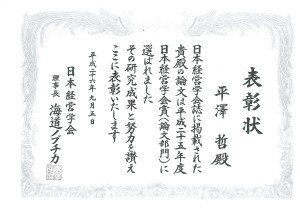 表彰状
平澤 哲殿
日本経営学会誌に掲載された
貴殿の論文は平成二十五年度
日本経営学会賞(論文部門)に
選ばれました
その研究成果と努力を讃え
ここに表彰いたします
平成二十六年九月五日
日本経営学会
理事長 海道ノブチカ